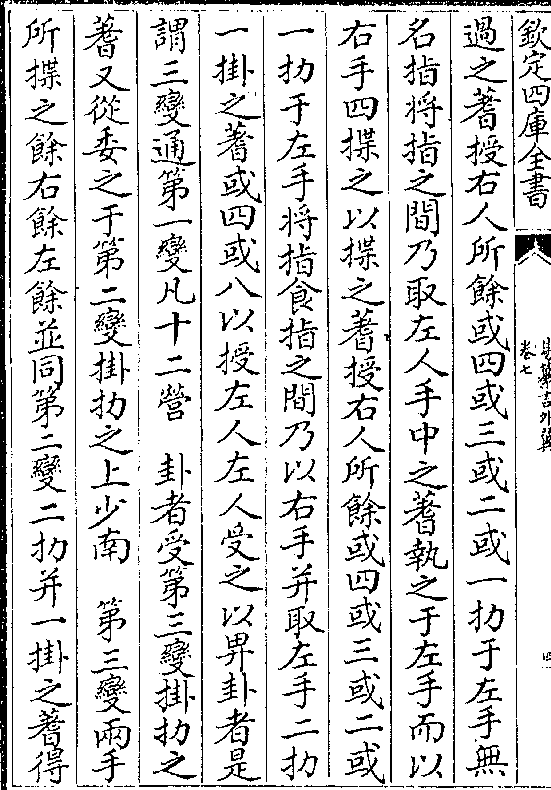 欽定四庫全書
卷七
四
過之蓍授右人所餘或四或三或二或一扐于左手無
名指将指之間乃取左人手中之蓍執之于左手而以
右手四揲之以揲之蓍授右人所餘或四或三或二或
一扐于左手将指食指之間乃以右手并取左手二扐
一掛之蓍或四或八以授左人左人受之以畀卦者是
謂三變通第一變凡十二營　卦者受第三變掛扐之
蓍又從委之于第二變掛扐之上少南　第三變兩手
所揲之餘右餘左餘並同第二變二扐并一掛之蓍得